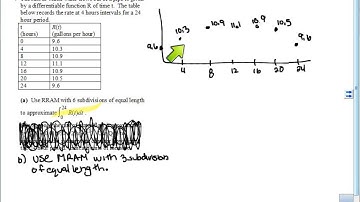 by a differentiable function R of time t. The table
below records the rate at 4 hours intervals for a 24
hour period.
t
(hours)
R(t)
(gallons per hour)
0 9.6
4 10.3
8 10.9
12 11.1
16 10.9
20 10.5
24 9.6
9.6
10.3
10.9
11.1
10.9
10.5
9.6
4 8 12 16 20 24
(a) Use RRAM with 6 subdivisions of equal length
to approximate ∫₀²⁴ R(t)dt.
b) USE MRAM with 3 subdivision
of equal length.